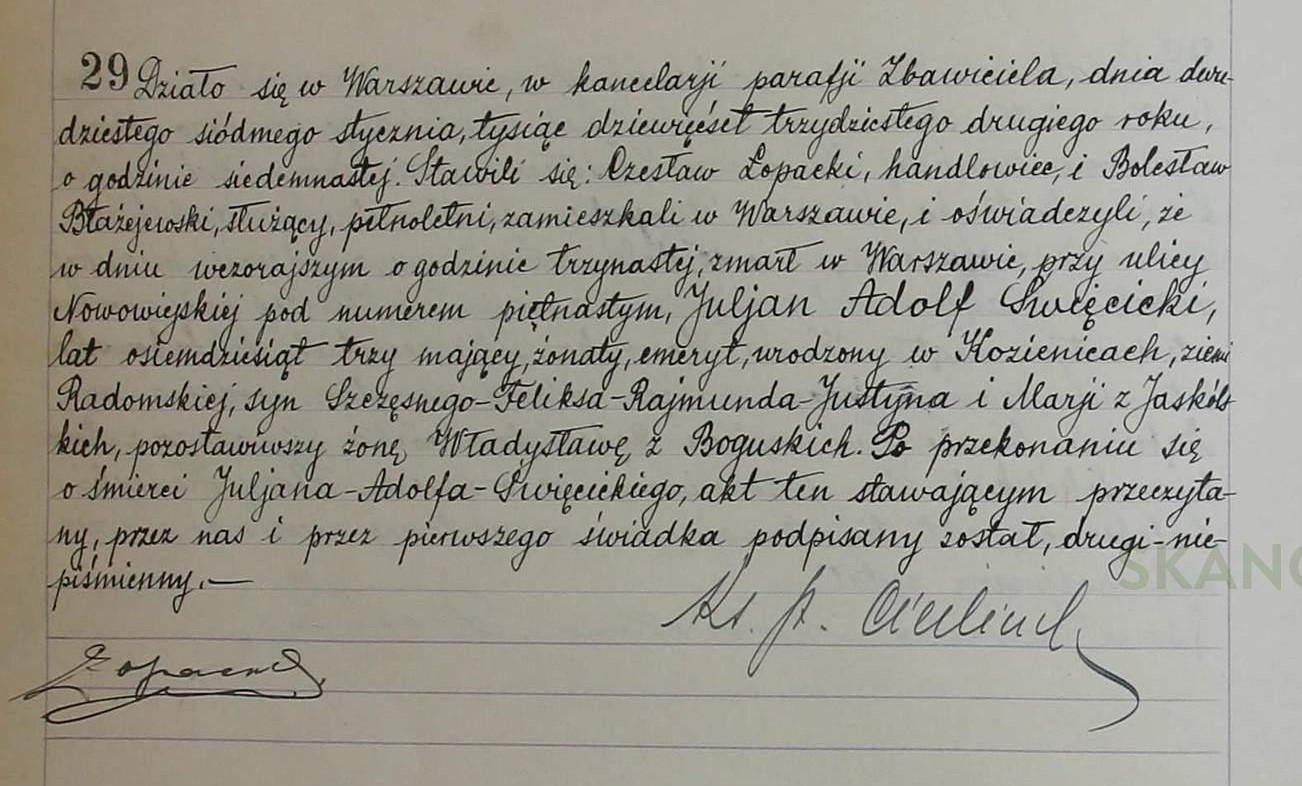 29 Działo się w Warszawie, w kancelarji parafji Zbawiciela, dnia dwu-
dziestego siódmego stycznia, tysiąc dziewięćset trzydziestego drugiego roku,
o godzinie siedemnastej. Stawili się: Czesław Łopacki, handlowiec, i Bolesław
Błażejewski, służący, pełnoletni, zamieszkali w Warszawie, i oświadczyli, że
w dniu wczorajszym o godzinie trzynastej, zmarł w Warszawie, przy ulicy
Nowowiejskiej pod numerem piętnastym, Juljan Adolf Święcicki,
lat osiemdziesiąt trzy mający, żonaty, emeryt, urodzony w Kozienicach, ziemi
Radomskiej, syn Szczęsnego-Feliksa-Rajmunda-Justyna i Marji z Jaskóls-
kich, pozostawiwszy żonę Władysławę z Boguskich. Po przekonaniu się
o śmierci Juljana-Adolfa-Święcickiego, akt ten stawającym przeczyta-
ny, przez nas i przez pierwszego świadka podpisany został, drugi-nie-
piśmienny.—
Ks.
Łopacki
SKANO